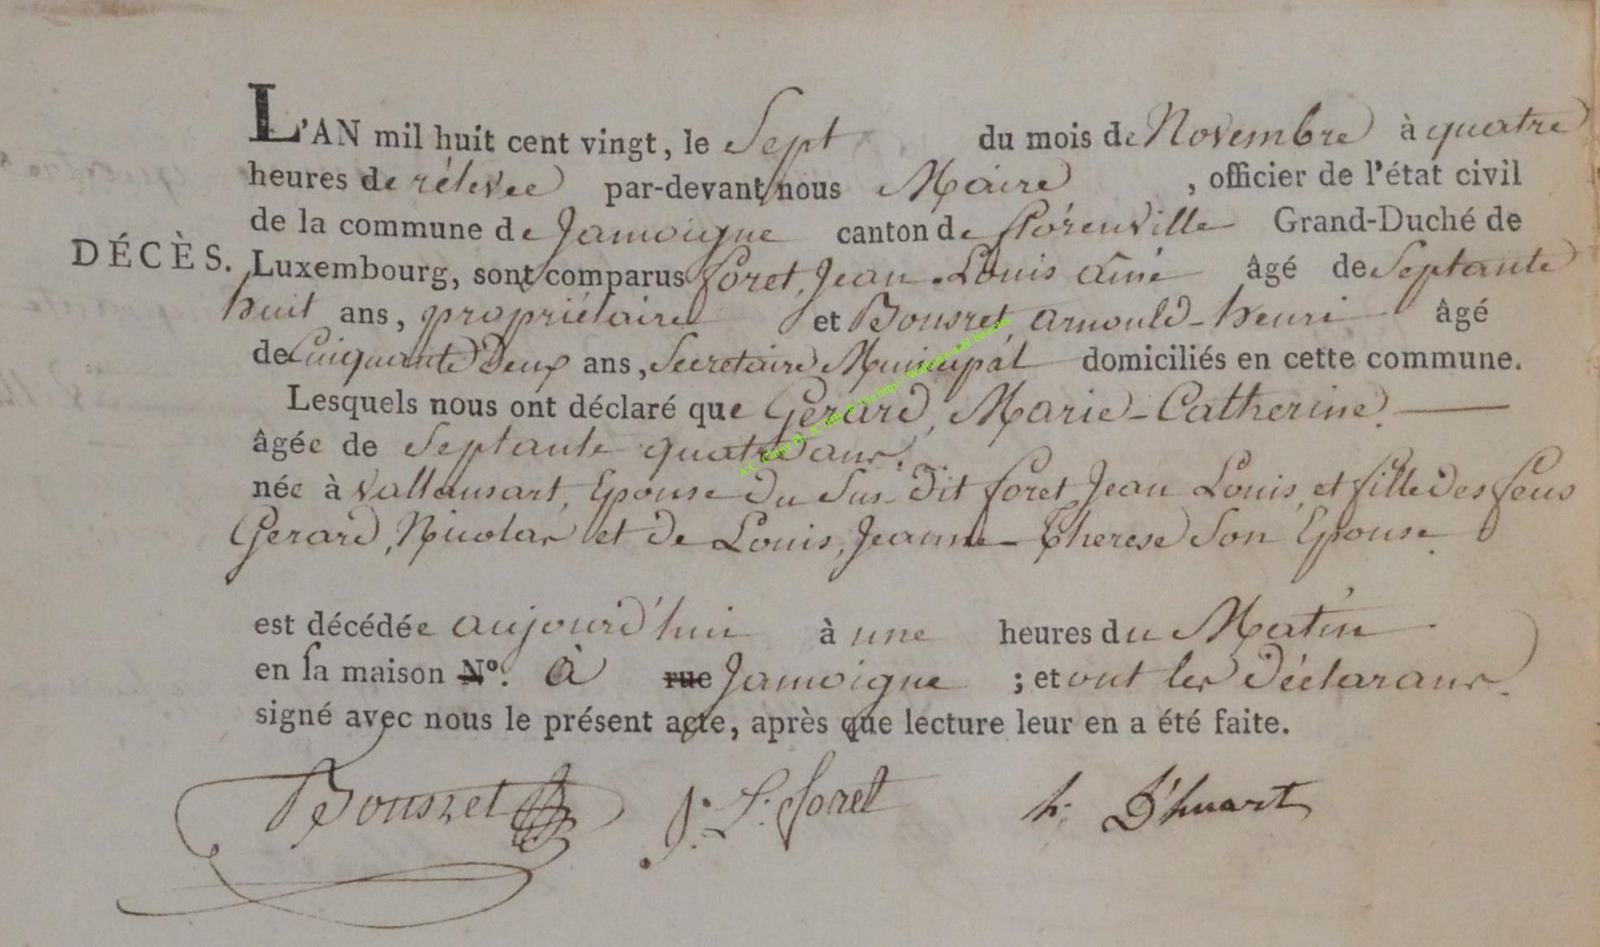 L'AN mil huit cent vingt, le Sept du mois de Novembre à quatre
heures de rélevée par-devant nous Maire, officier de l'état civil
de la commune de Jamoigne canton de Florenville Grand-Duché de
DÉCÈS. Luxembourg, sont comparus foret, Jean-Louis aîné âgé de Septante
huit ans, propriétaire et Bousret arnould-henri âgé
de Cinquante Deux ans, Secretaire Municipal domiciliés en cette commune.
Lesquels nous ont déclaré que Gerard, Marie-Catherine.
âgée de Septante quatre ans.
née à Vallansart, Epouse du Sus-dit foret Jean Louis, et fille des feus
Gerard, Nicolas et de Louis, Jeanne-Therese Son Epouse.
est décédée aujourd'hui à une heures du Matin
en sa maison N°. à rue Jamoigne ; et ont les déclarans
signé avec nous le présent acte, après que lecture leur en a été faite.
Bousret J. L. foret h. D'huart